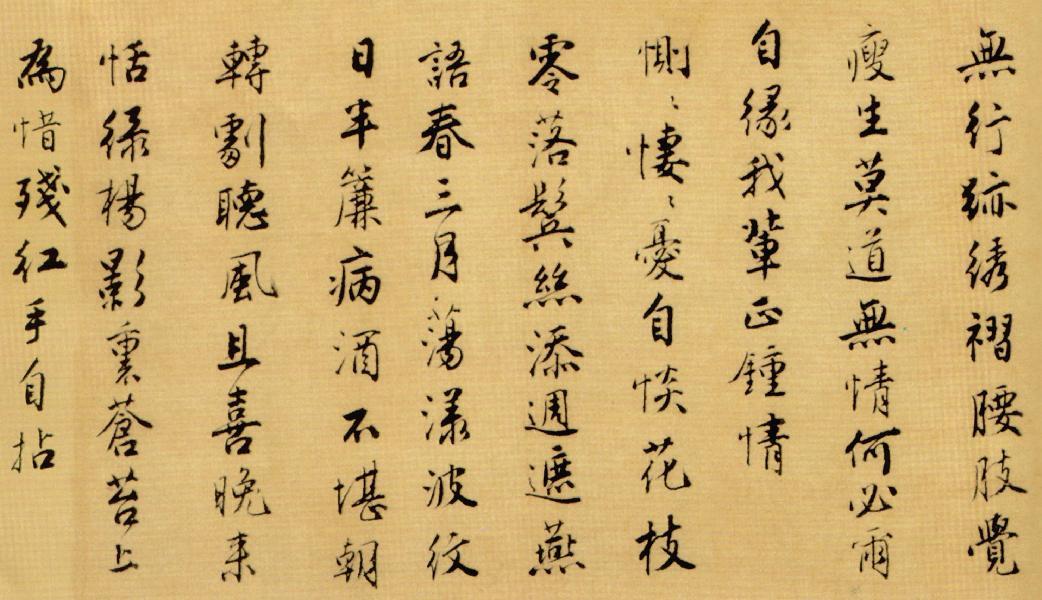 無行跡綉褶腰肢覺
瘦生莫道無情何必爾
自緣我輩正鍾情
惻〻悽〻憂自惔花枝
零落鬂絲添週遮燕
語春三月蕩漾波紋
日半簾病酒不堪朝
轉劇聽風且喜晚来
恬緑楊影裏蒼苔上
為惜殘紅手自拈